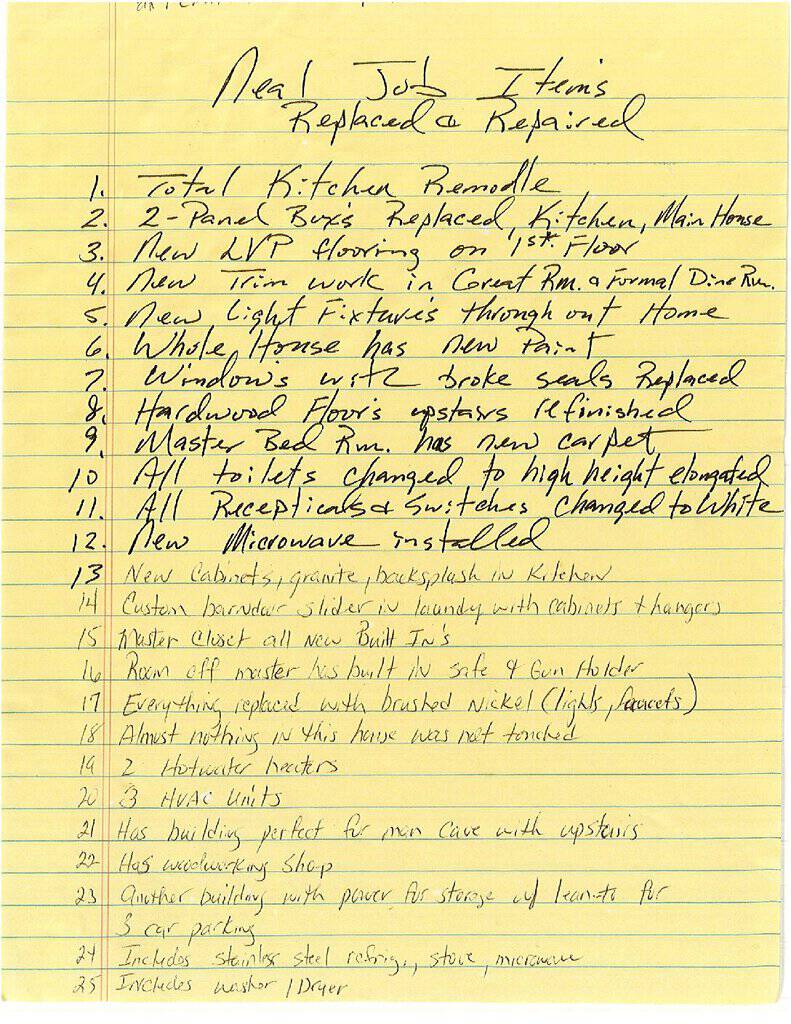 Neal Job Items
Replaced & Repaired
1. Total Kitchen Remodle
2. 2-Panel Box's Replaced, Kitchen, Main House
3. New LVP flooring on 1st. Floor
4. New Trim work in Great Rm. & Formal Dine Rm.
5. New Light Fixture's through out Home
6. Whole House has new Paint
7. Window's with broke seals Replaced
8. Hardwood Floor's upstairs refinished
9. Master Bed Rm. has new carpet
10 All toilets changed to high height elongated
11. All Recepticals & Switches changed to White
12. New Microwave installed
13 New Cabinets, granite, backsplash in Kitchen
14 Custom barndoor slider in laundry with cabinets + hangers
15 Master Closet all New Built In's
16 Room off master has built in safe & Gun Holder
17 Everything replaced with brushed Nickel (lights, faucets)
18 Almost nothing in this house was not touched
19 2 Hotwater heaters
20 3 HVAC Units
21 Has building perfect for man cave with upstairs
22 Has woodworking shop
23 Another building with power for storage w/ lean-to for
3 car parking
24 Includes stainless steel refrig., stove, microwave
25 Includes washer / Dryer